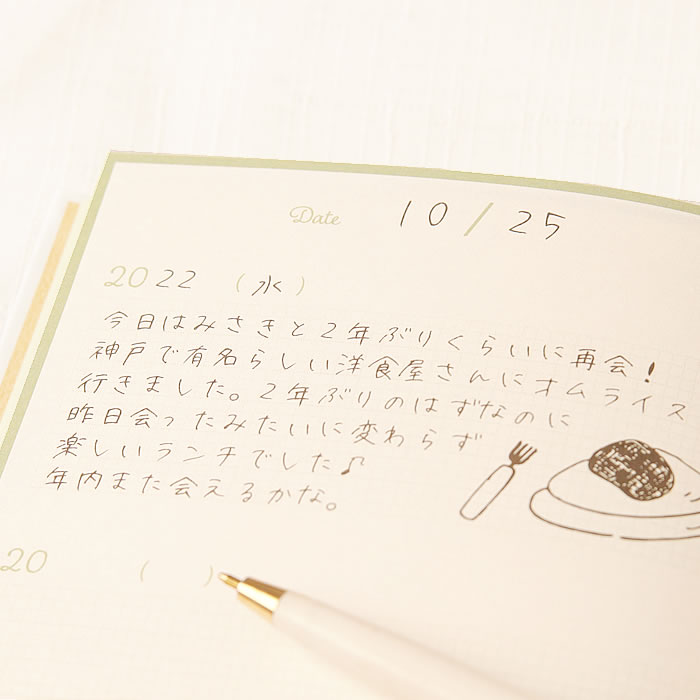 Date 10/25
2022 (水)
今日はみさきと2年ぶりくらいに再会!
神戸で有名らしい洋食屋さんにオムライス
行きました。2年ぶりのはずなのに
昨日会ったみたいに変わらず
楽しいランチでした♪
年内また会えるかな。
20 ( )